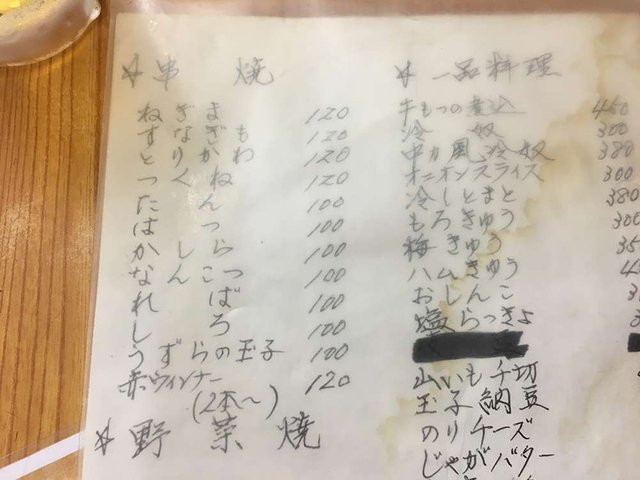 ☆串 焼
ねぎま 120
すなぎも 120
とりかわ 120
つくね 120
たん 100
はつ 100
かしら 100
なんこつ 100
ればー 100
しろ 100
うずらの玉子 100
赤ウィンナー 120
(2本〜)
☆野 菜 焼
☆一品料理
牛もつの煮込
冷 奴 300
中カ風冷奴 380
オニオンスライス 300
冷しとまと 380
もろきゅう 300
梅きゅう 35
ハムきゅう
おしんこ
塩らっきょ
山いも千切
玉子納豆
のりチーズ
じゃがバター